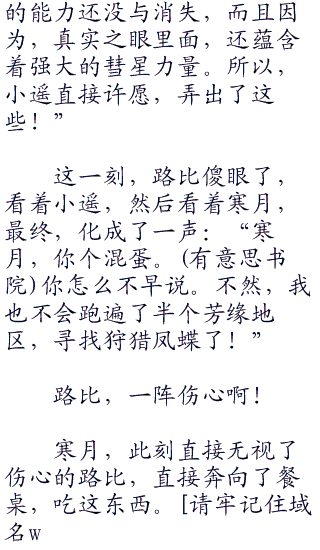 的能力还没与消失，而且因
为，真实之眼里面，还蕴含
着强大的彗星力量。所以，
小遥直接许愿，弄出了这
些！”
这一刻，路比傻眼了，
看着小遥，然后看着寒月，
最终，化成了一声：“寒
月，你个混蛋。(有意思书
院)你怎么不早说。不然，我
也不会跑遍了半个芳缘地
区，寻找狩猎凤蝶了！”
路比，一阵伤心啊！
寒月，此刻直接无视了
伤心的路比，直接奔向了餐
桌，吃这东西。[请牢记住域
名w